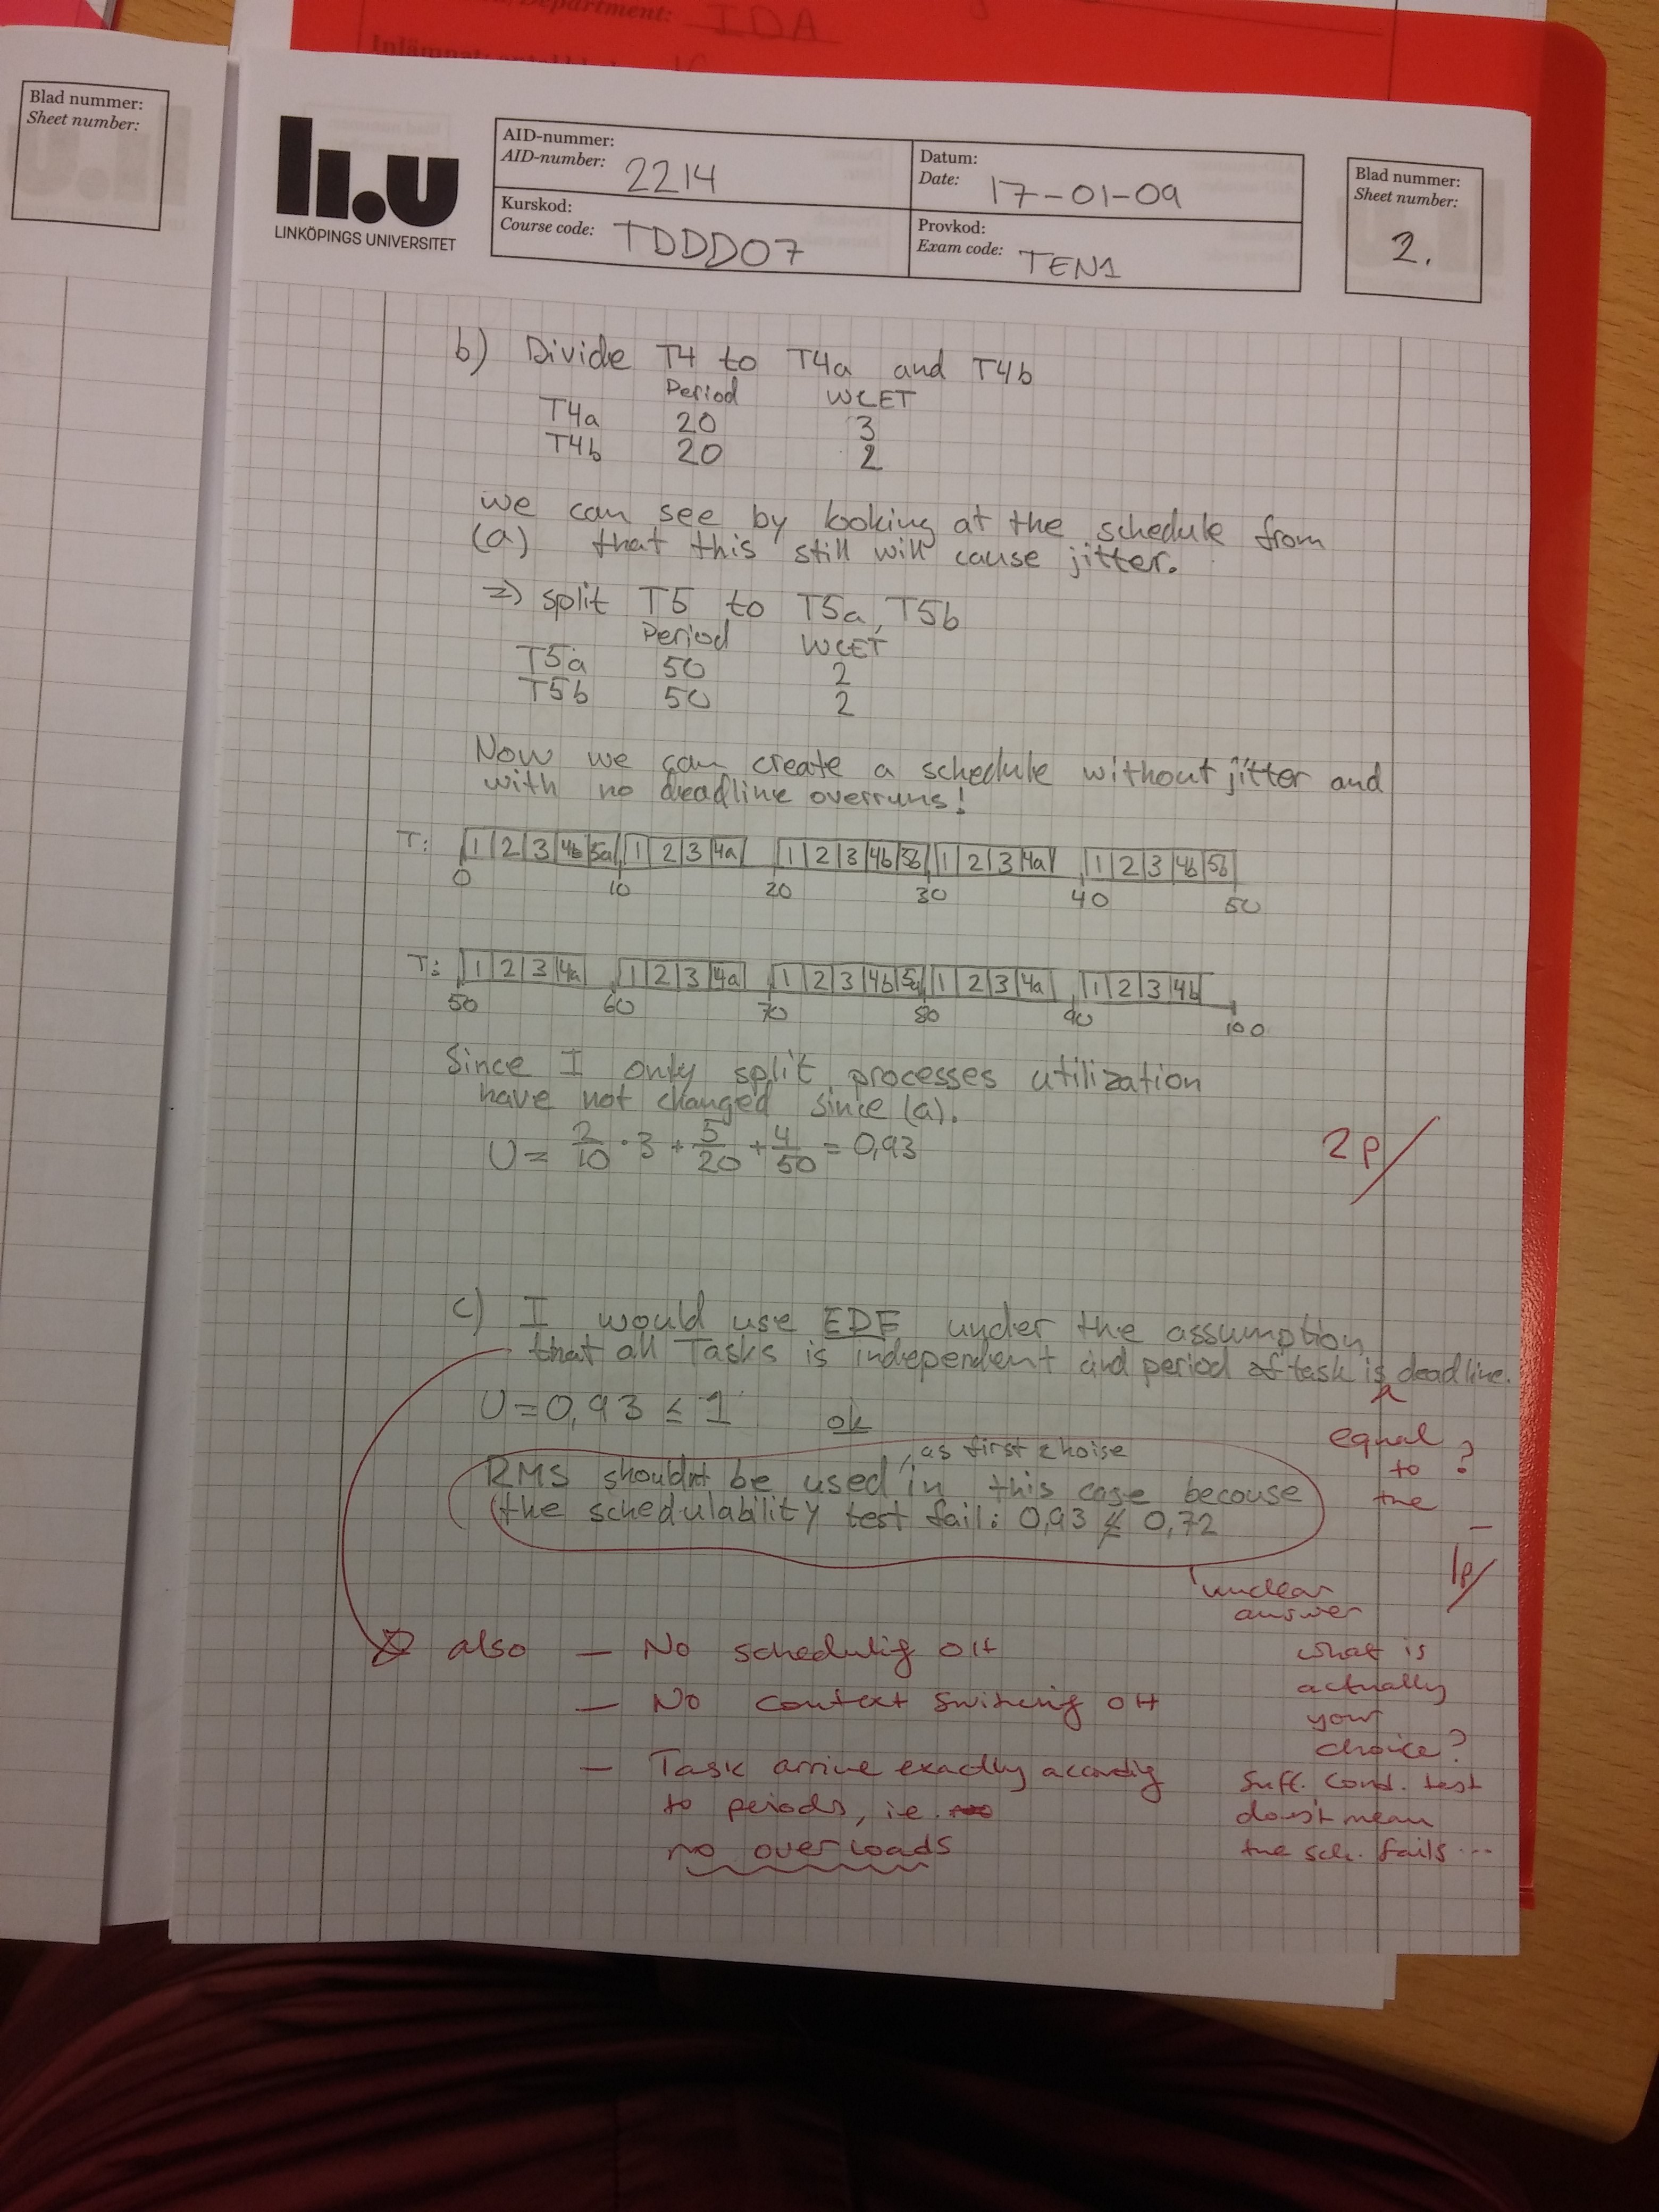 Department: IDA
Blad nummer:
Sheet number:
LI.U
LINKÖPINGS UNIVERSITET
AID-nummer:
AID-number: 2214
Datum:
Date: 17-01-09
Kurskod:
Course code: TDDD07
Provkod:
Exam code: TEN1
Blad nummer:
Sheet number:
2.
b) Divide T4 to T4a and T4b
Period WCET
T4a 20 3
T4b 20 2
we can see by looking at the schedule from
(a) that this still will cause jitter.
=> split T5 to T5a, T5b
Period WCET
T5a 50 2
T5b 50 2
Now we can create a schedule without jitter and
with no deadline overruns!
T: 1 2 3 4b 5a 1 2 3 4a 1 2 3 4b 5b 1 2 3 4a 1 2 3 4b 5b
0 10 20 30 40 50
T: 1 2 3 4a 1 2 3 4a 1 2 3 4b 5a 1 2 3 4a 1 2 3 4b
50 60 70 80 90 100
Since I only split processes utilization
have not changed since (a).
U = 2/10 · 3 + 5/20 + 4/50 = 0,93
2p/
c) I would use EDF under the assumption
that all Tasks is independent and period of task is deadline.
equal to the ?
U = 0,93 ≤ 1 ok
, as first choise
RMS shouldnt be used in this case becouse
the schedulability test fail: 0,93 ≰ 0,72
1p/
unclear
answer
what is
actually
your
choice?
Suff. cond. test
doesn't mean
the sch. fails...
also — No scheduling OH
— No context switching OH
— Task arrive exactly according
to periods, i.e.
no overloads